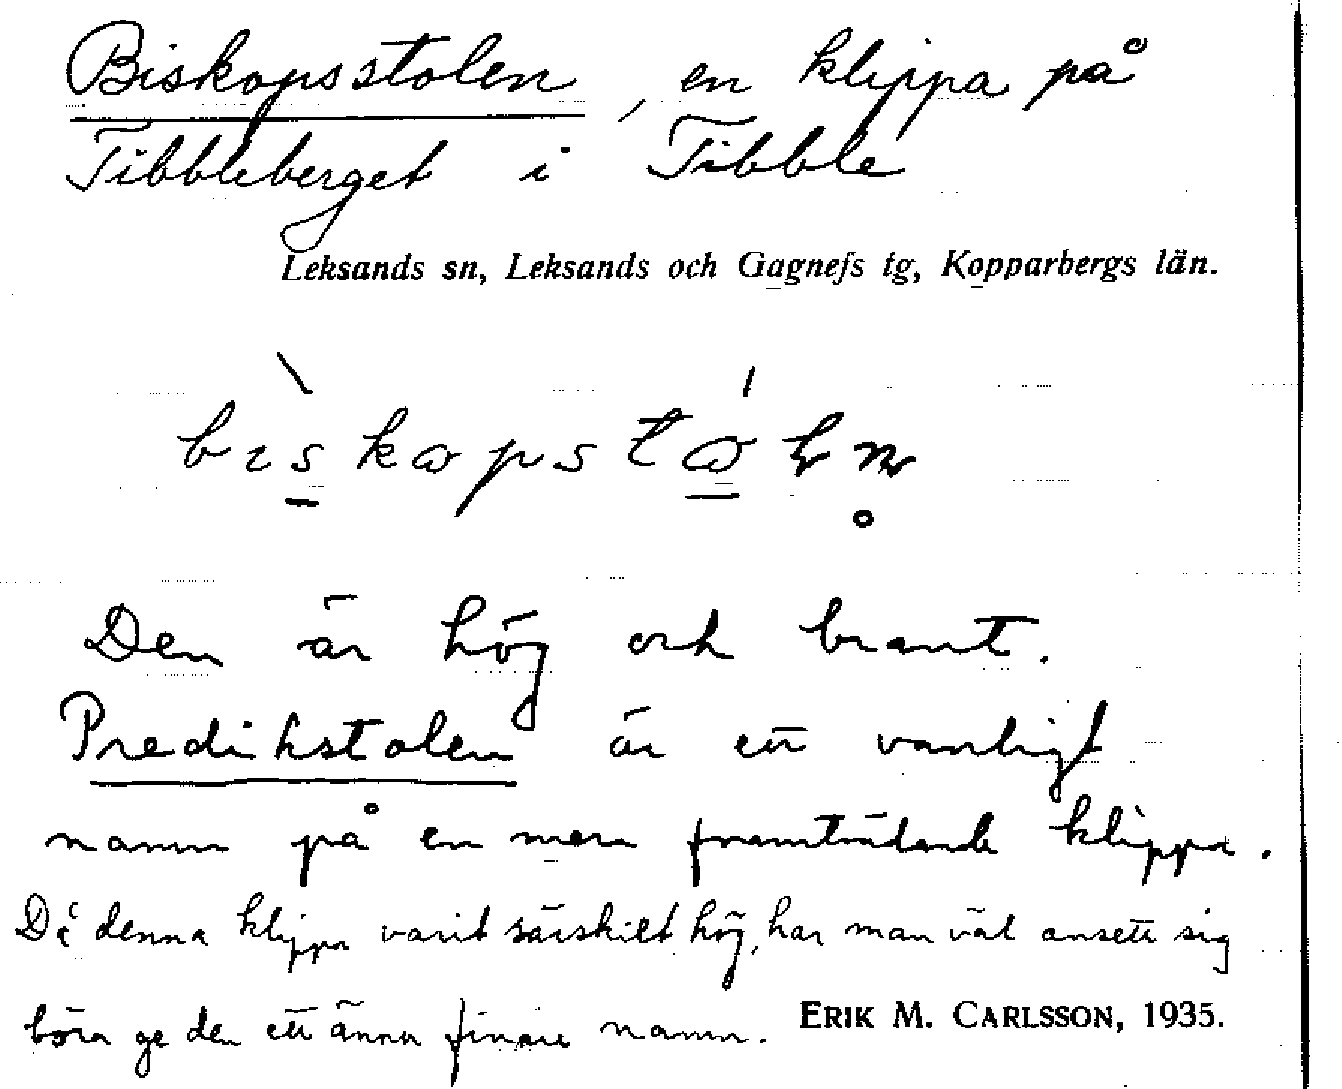 Biskopsstolen, en klippa på
Tibbleberget i Tibble
Leksands sn, Leksands och Gagnefs tg, Kopparbergs län.
bɪs̲kɷpstɷ̲́ln̥
Den är hög och brant.
Predikstolen är ett vanligt
namn på en mera framträdande klippa.
Då denna klippa varit särskilt hög, har man väl ansett sig
böra ge den ett ännu finare namn.
ERIK M. CARLSSON, 1935.